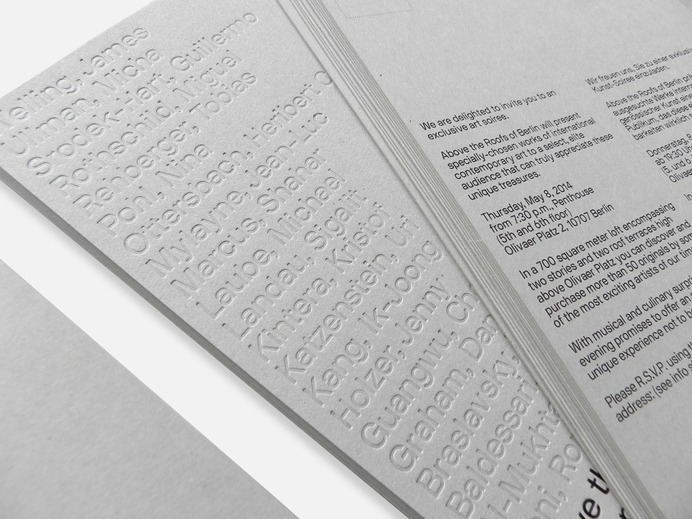 Kelling, James
Ullman, Micha
Srodek-Hart, Guillermo
Rothschild, Miguel
Rehberger, Tobias
Pohl, Nina
Ottersbach, Heribert C
Mylayne, Jean-Luc
Marcus, Shahar
Laube, Michael
Landau, Sigalit
Kintera, Kristof
Katzenstein, Uri
Kang, Ik-Joong
Holzer, Jenny
Guangwu, Ch
Graham, Dan
Braslavsky,
Baldessari,
l-Mukhta
ni, Ro
ve th
We are delighted to invite you to an
exclusive art soiree.
Above the Roofs of Berlin will present
specially-chosen works of international
contemporary art to a select, elite
audience that can truly appreciate these
unique treasures.
Thursday, May 8, 2014
from 7:30 p.m., Penthouse
(5th and 6th floor)
Olivaer Platz 2, 10707 Berlin
In a 700 square meter loft encompassing
two stories and two roof terraces high
above Olivaer Platz you can discover and
purchase more than 50 originals by some
of the most exciting artists of our time
With musical and culinary surpr
evening promises to offer an
unique experience not to b
Please R.S.V.P. using th
address: (see info s
Wir freuen uns, Sie zu einer exklusi
Kunst-Soiree einzuladen.
Above the Roofs of Berlin prä
ausgesuchte Werke internati
genössischer Kunst eine
Publikum, das diese
barkeiten wirklich
Donnerstag,
ab 19:30 Uh
(5. und 6.
Olivae